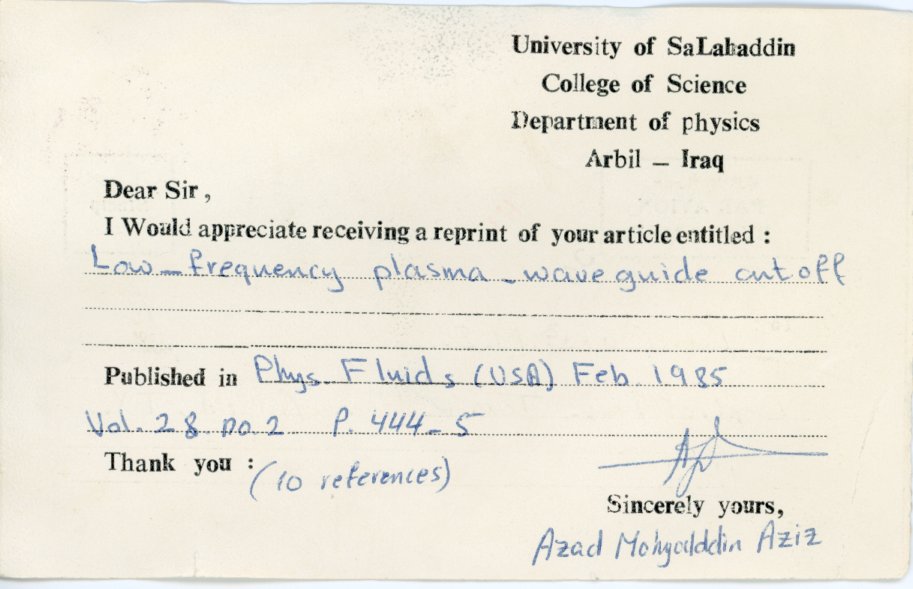 University of SaLahaddin
College of Science
Department of physics
Arbil – Iraq
Dear Sir,
I Would appreciate receiving a reprint of your article entitled :
Low-frequency plasma-waveguide cutoff
Published in Phys. Fluids (USA) Feb 1985
Vol. 28 no.2 P. 444-5
Thank you :
(10 references)
Sincerely yours,
Azad Mohyaddin Aziz